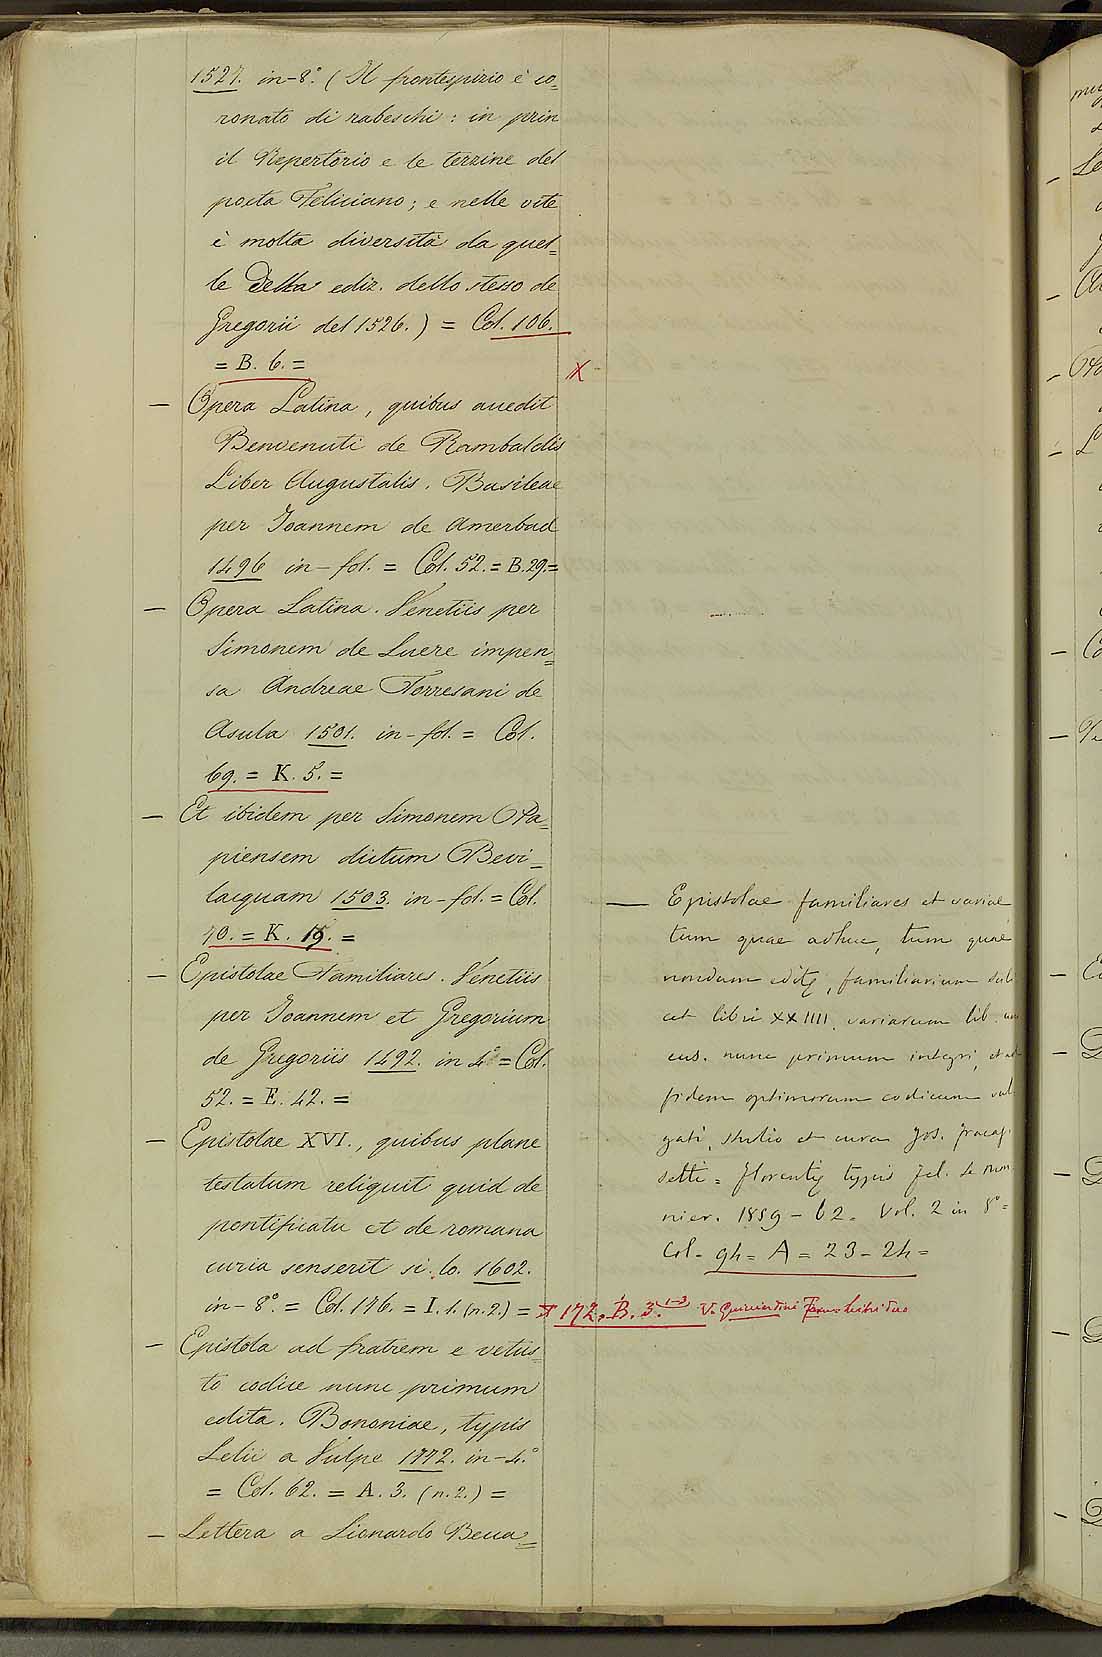 1527. in-8.° (Il frontespizio è co=
ronato di rabeschi: in prin
il Repertorio e le terzine del
poeta Feliciano; e nelle vite
è molta diversità da quel=
le della ediz. dello stesso de
Gregorii del 1526.) = Col. 106.
= B. 6. =
X
— Opera Latina, quibus accedit
Benvenuti de Rambaldis
Liber Augustalis. Basileae
per Joannem de Amerbad
1496 in-fol. = Col. 52. = B. 29. =
— Opera Latina. Venetiis per
Simonem de Luere impen=
sa Andreae Torresani de
Asula 1501. in-fol. = Col.
69. = K. 5. =
— Et ibidem per Simonem Pa=
piensem dictum Bevi=
lacquam 1503. in-fol. = Col.
40. = K. 19. =
— Epistolae Familiares. Venetiis
per Joannem et Gregorium
de Gregoriis 1492. in 4.° = Col.
52. = E. 42. =
— Epistolae XVI., quibus plane
testatum reliquit quid de
pontificatu et de romana
curia senserit si. lo. 1602.
in-8.° = Col. 176. = I. 1. (n. 2.) = 172. B. 3. 1-3 V.
— Epistola ad fratrem e vetus=
to codice nunc primum
edita. Bononiae, typis
Lelii a Vulpe 1772. in-4.°
= Col. 62. = A. 3. (n. 2.) =
— Lettera a Lionardo Becca=
— Epistolae familiares et variae
tum quae adhuc, tum quae
nondum editę, familiarium scili
cet libri XXIIII, variarum lib. un
cus. nunc primum integri, et ad
fidem optimorum codicum vul
gati, studio et cura Jos. Fracas
setti = Florentię typis Fel. Le Mon
nier. 1859-62. Vol. 2 in 8° =
Col. 94 = A = 23-24 =